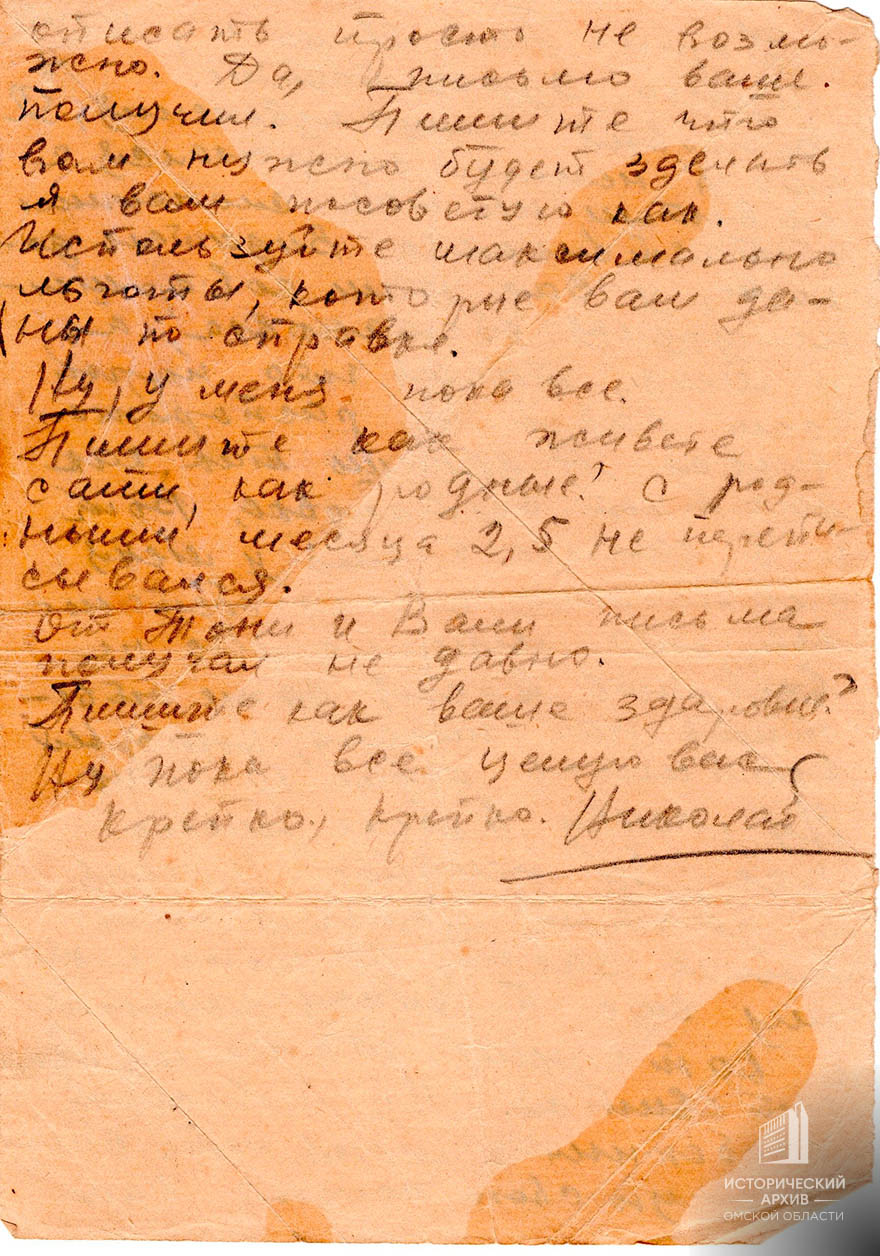 описать просто не возмо-
жно. Да, письмо ваше
получил. Пишите что
вам нужно будет зделать
я вам посоветую как.
Используйте максимально
льготы, которые вам да-
ны по справке.
Ну, у меня пока все.
Пишите как живете
сами, как родные? С род-
ными месяца 2,5 не перепи-
сывался.
От Тони и Вали письма
получал не давно.
Пишите как ваше здаровье?
Ну пока все целую вас
крепко, крепко. Николай
ИСТОРИЧЕСКИЙ
АРХИВ
ОМСКОЙ ОБЛАСТИ